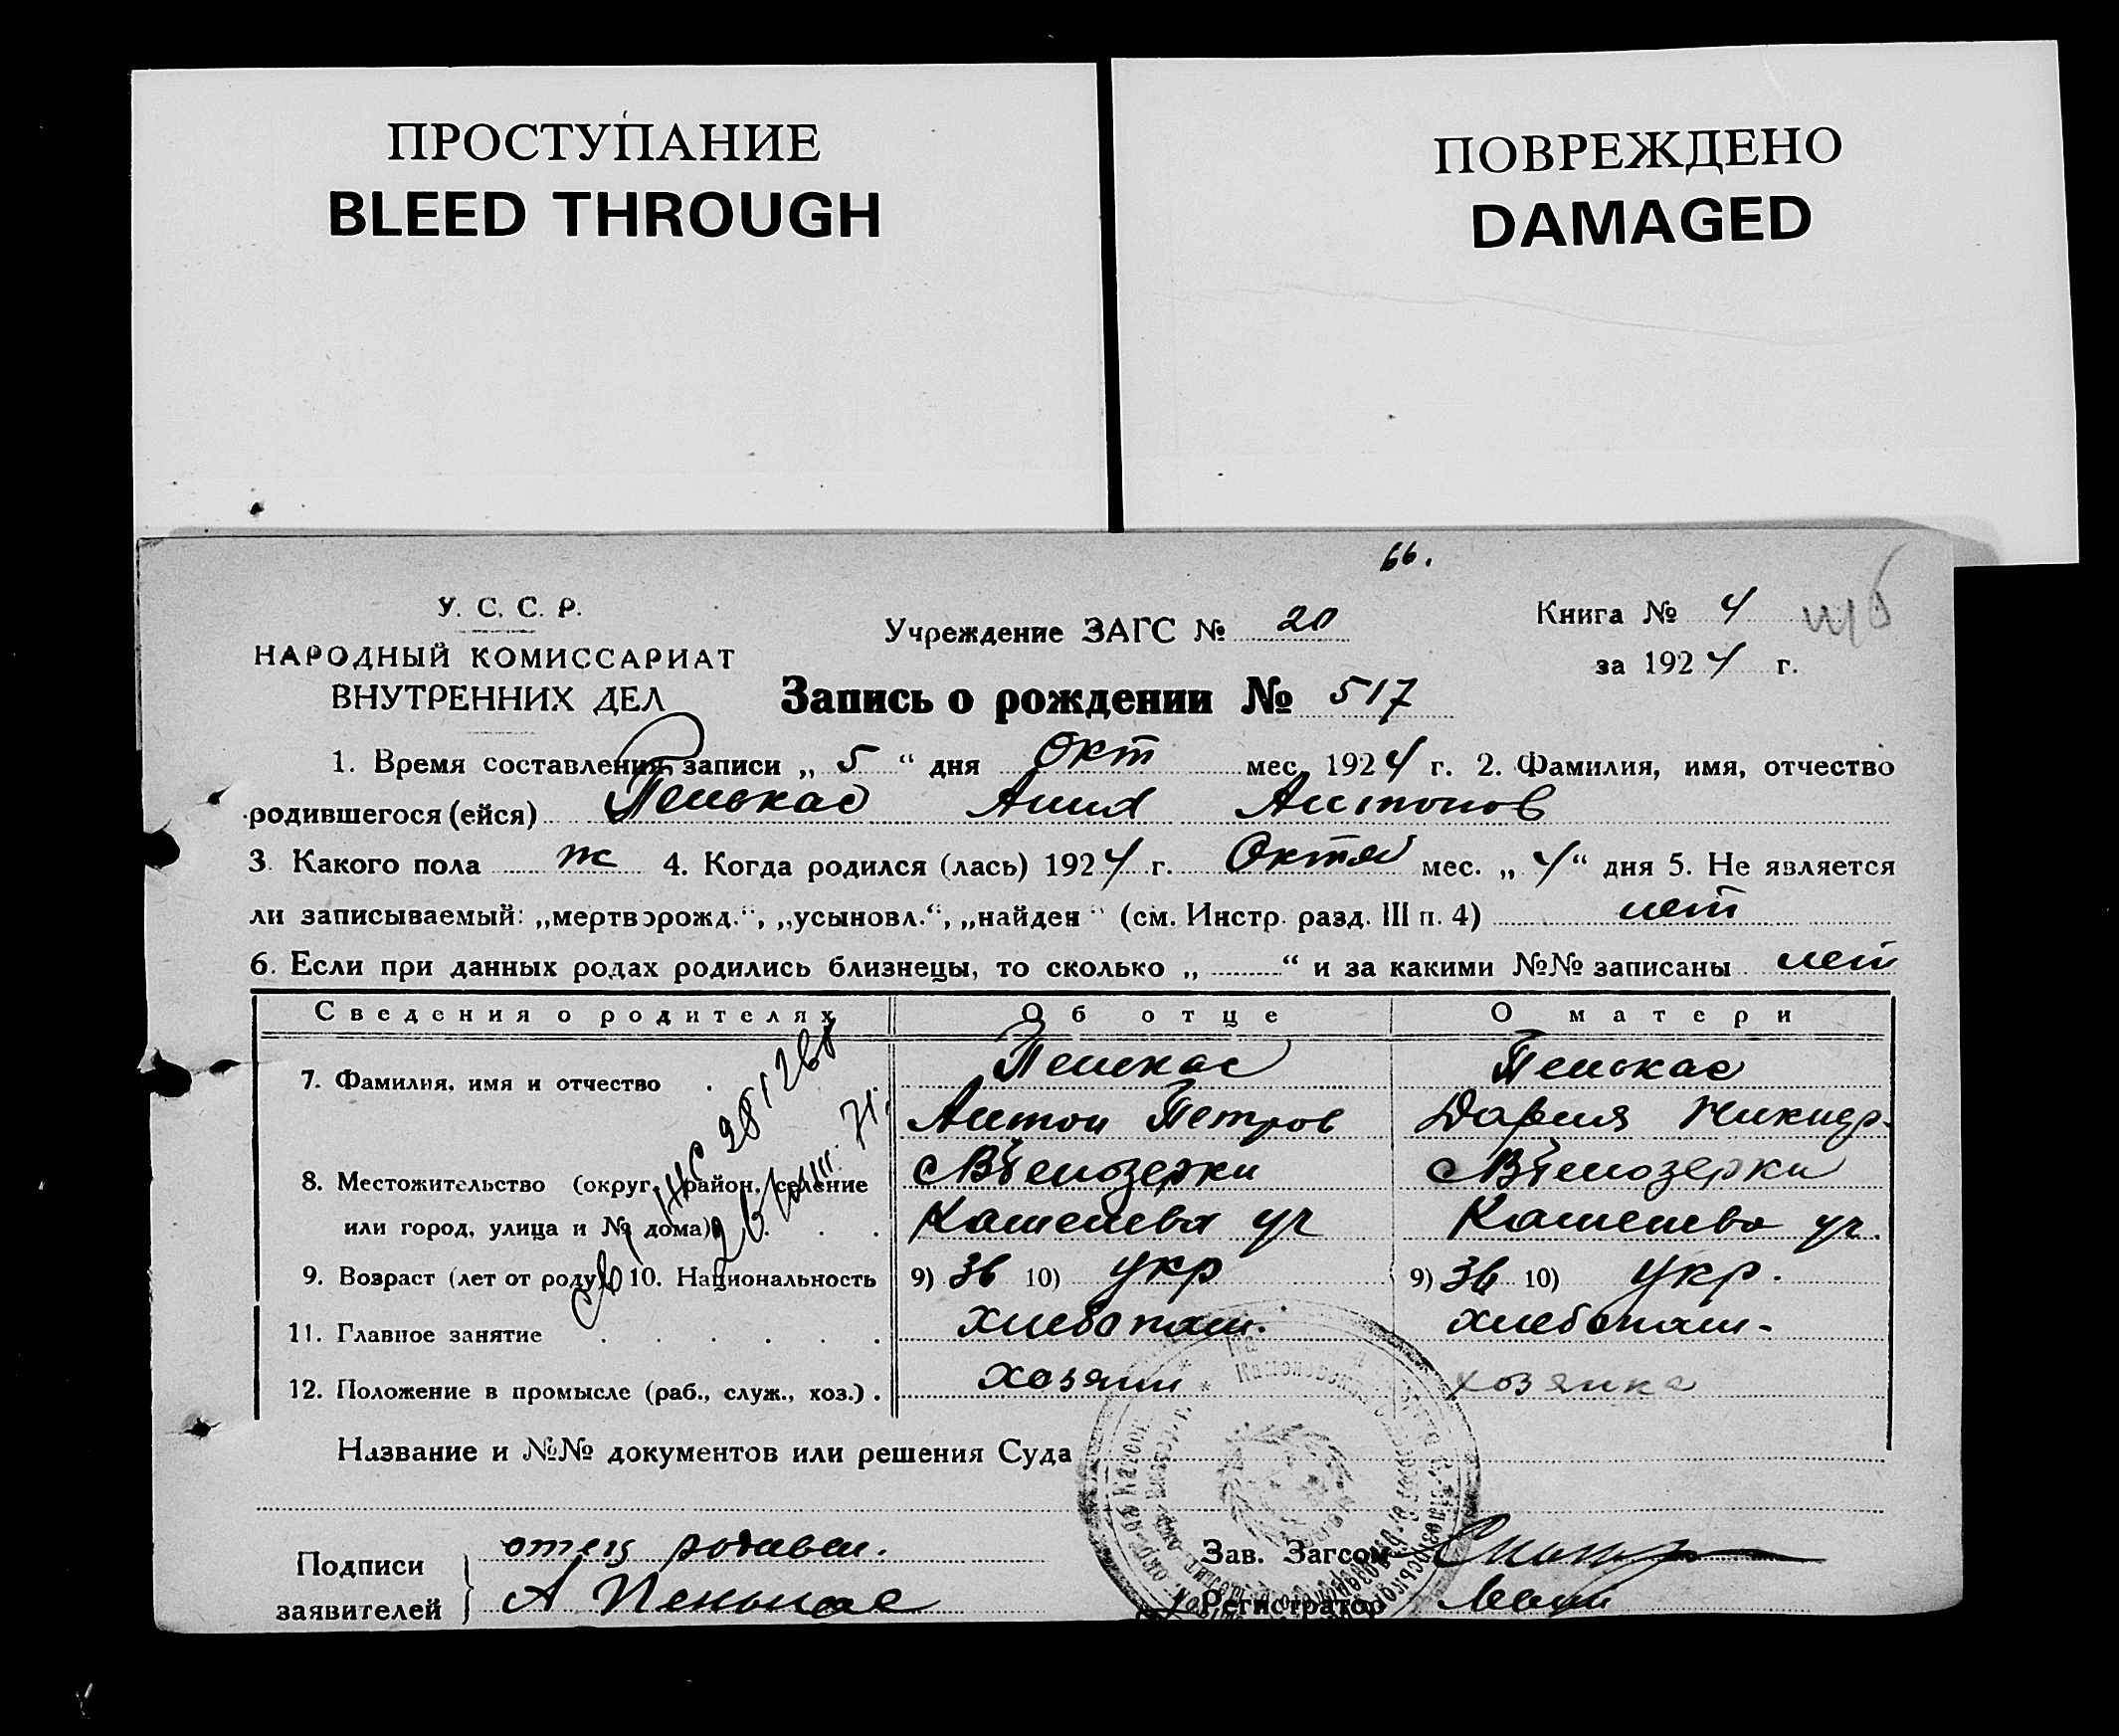 ПРОСТУПАНИЕ
BLEED THROUGH
ПОВРЕЖДЕНО
DAMAGED
66.
У. С. С. Р.
НАРОДНЫЙ КОМИССАРИАТ
ВНУТРЕННИХ ДЕЛ
Учреждение ЗАГС № 20
Книга № 4
за 1924 г.
Запись о рождении № 517
1. Время составления записи „ 5 “ дня Окт мес. 1924 г. 2. Фамилия, имя, отчество
родившегося (ейся) Пенькас Анна Антонов
3. Какого пола ж 4. Когда родился (лась) 1924 г. Октяб мес. „ 4 “ дня 5. Не является
ли записываемый: „мертворожд.“, „усыновл.“, „найден“ (см. Инстр. разд. III п. 4) нет
6. Если при данных родах родились близнецы, то сколько „ “ и за какими №№ записаны нет
Сведения о родителях Об отце О матери
7. Фамилия, имя и отчество Пенькас Пенькас
Антон Петров Дария
8. Местожительство (округ, район, селение Белозерки Белозерки
или город, улица и № дома) ул ул.
9. Возраст (лет от роду) 10. Национальность 9) 36 10) укр 9) 36 10) укр.
11. Главное занятие хлебопаш. хлебопаш.
12. Положение в промысле (раб., служ., хоз.) хозяин хозяйка
Название и №№ документов или решения Суда
Подписи
заявителей
отец
А Пенькас
Зав. Загсом
Регистратор